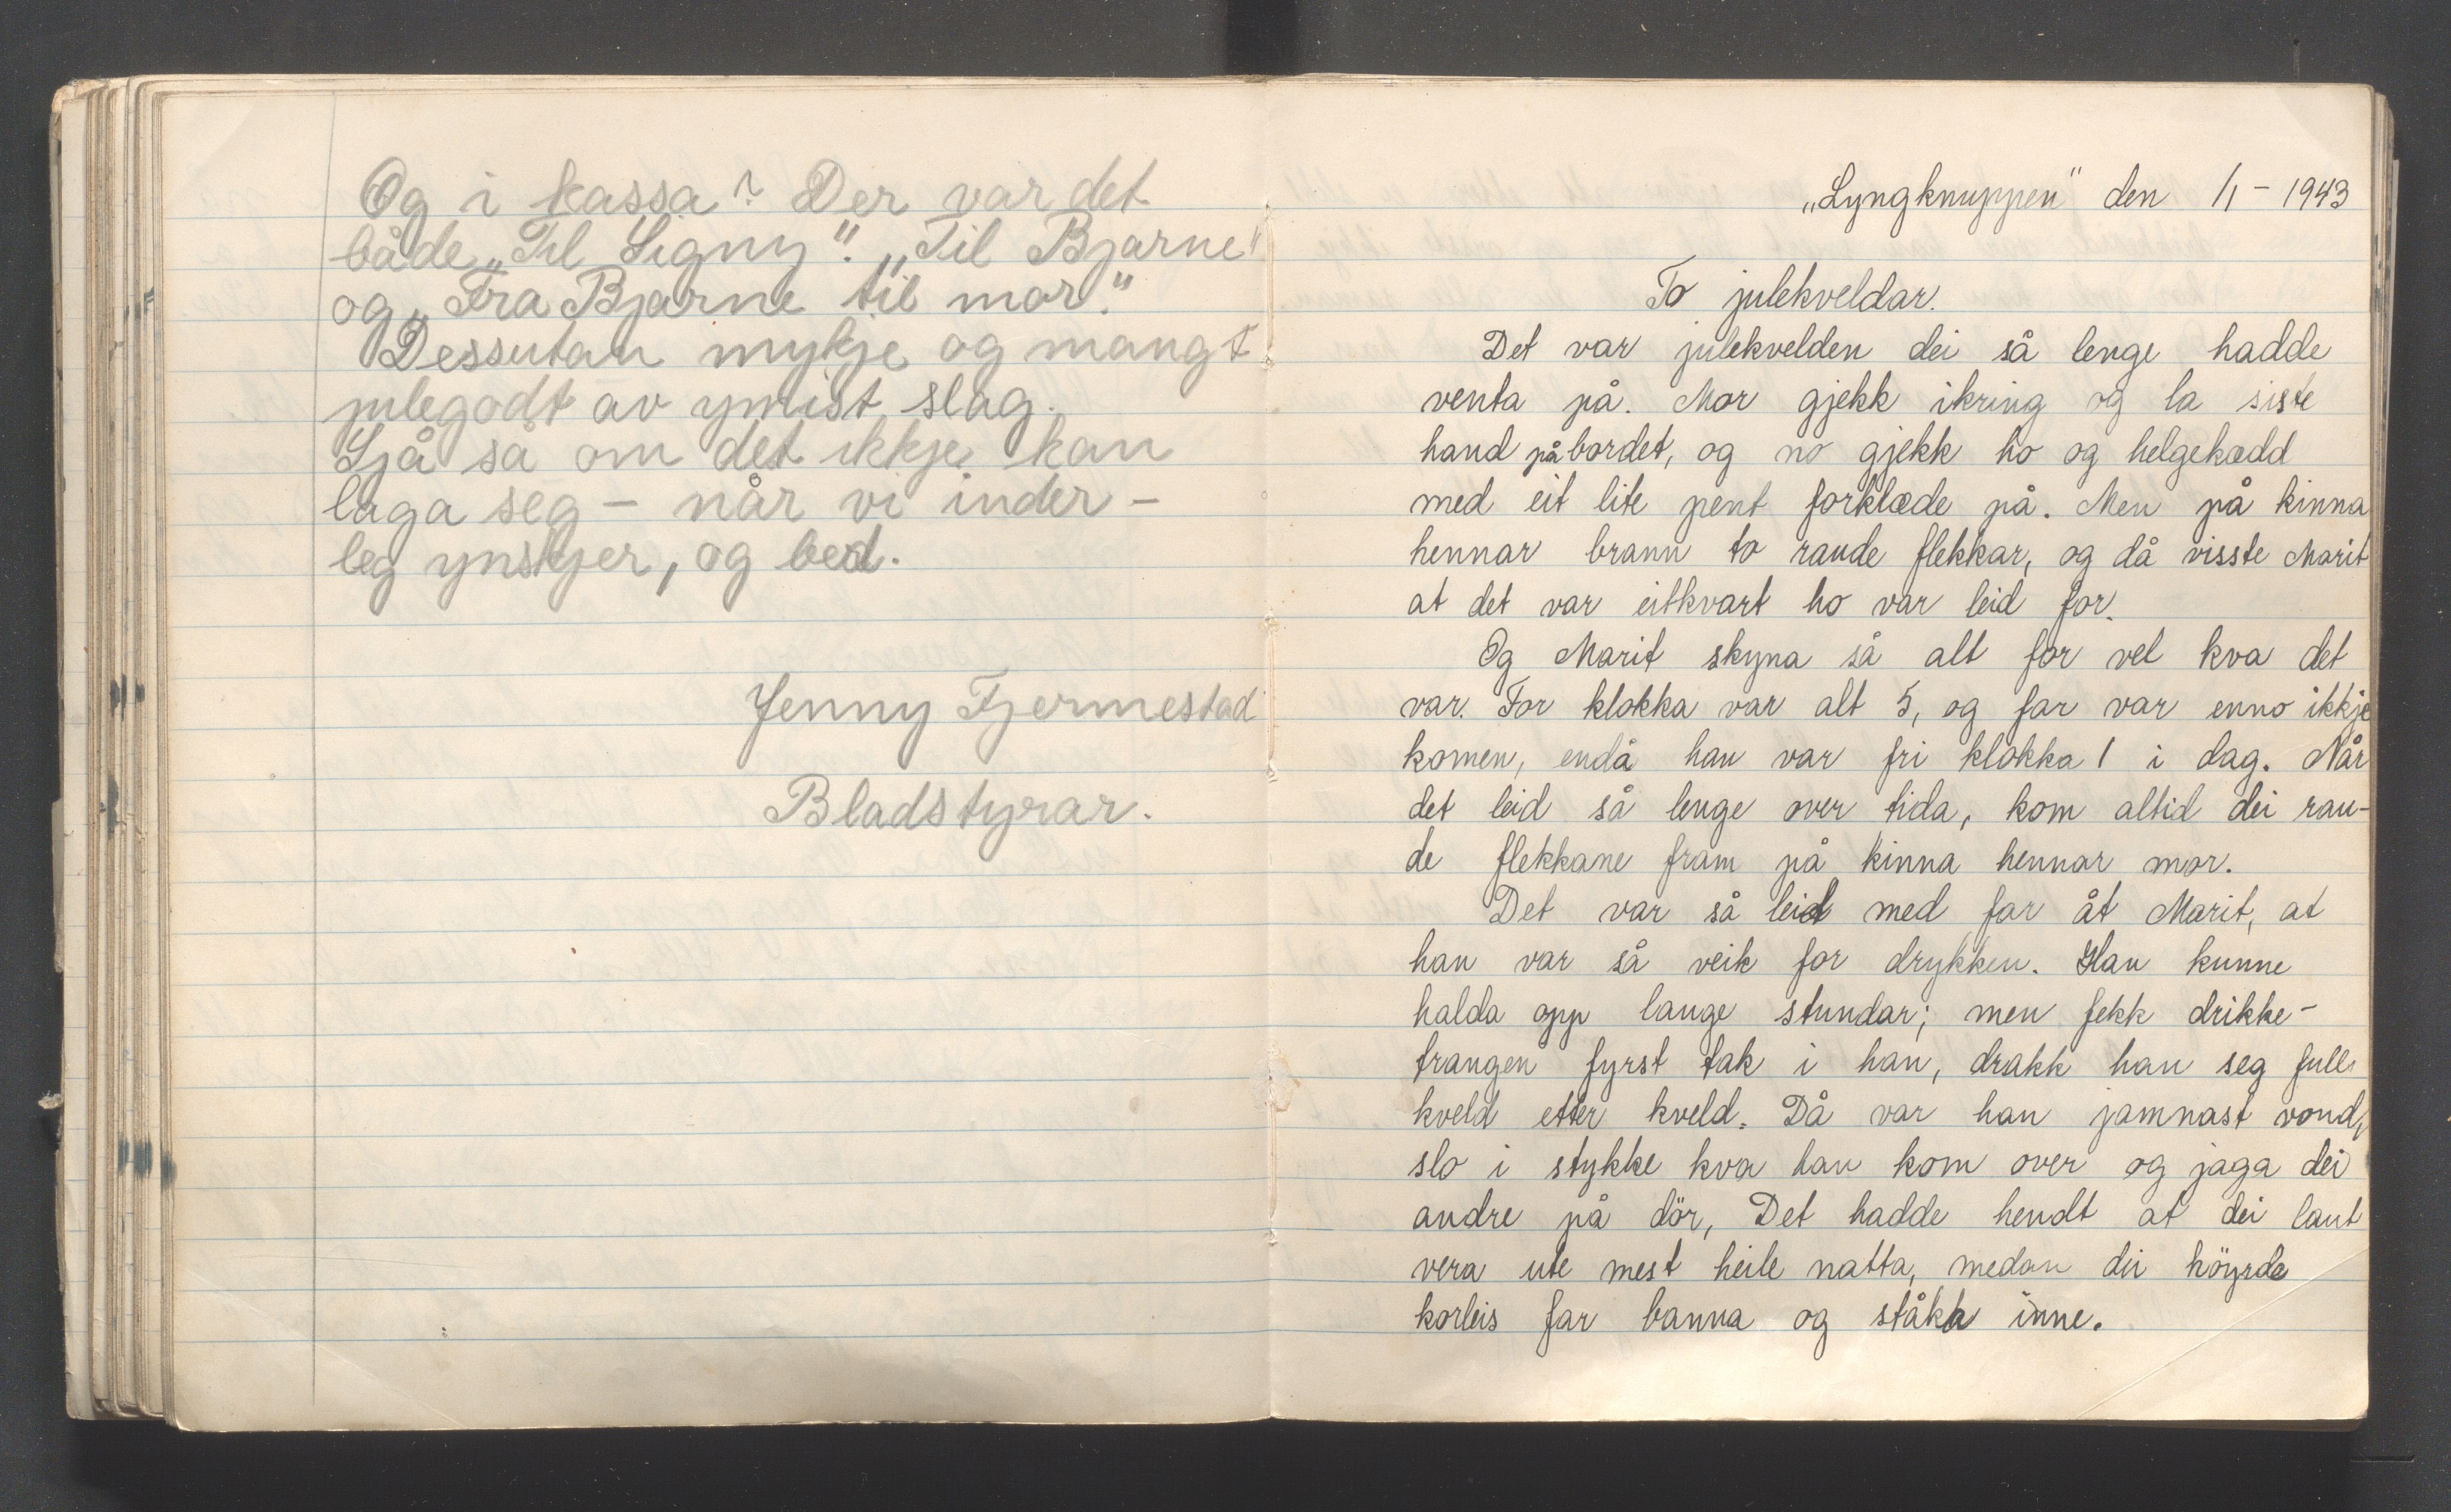 Og i kassa? Der var det
både „Til Signy". „Til Bjarne"
og „Fra Bjarne til mor."
Dessutan mykje og mangt
julegodt av ymist slag.
Sjå så om det ikkje kan
laga seg – når vi inder-
leg ynskjer, og bed.
Jenny Fjermestad
Bladstyrar.
„Lyngknuppen" den 1/1 – 1943
To julekveldar.
Det var julekvelden dei så lenge hadde
venta på. Mor gjekk ikring og la siste
hand på bordet, og no gjekk ho og helgekledd
med eit lite pent forklæde på. Men på kinna
hennar brann to raude flekkar, og då visste Marit
at det var eitkvart ho var leid for.
Og Marit skyna så alt for vel kva det
var. For klokka var alt 5, og far var enno ikkje
komen, endå han var fri klokka 1 i dag. Når
det leid så lenge over tida, kom altid dei rau-
de flekkane fram på kinna hennar mor.
Det var så leid med far åt Marit, at
han var så veik for drykken. Han kunne
halda opp lange stundar; men fekk drikke-
trangen fyrst tak i han, drakk han seg full
kveld etter kveld. Då var han jamnast vond,
slo i stykke kva han kom over og jaga dei
andre på dör, Det hadde hendt at dei laut
vera ute mest heile natta, medan dei höyrde
korleis far banna og ståka inne.